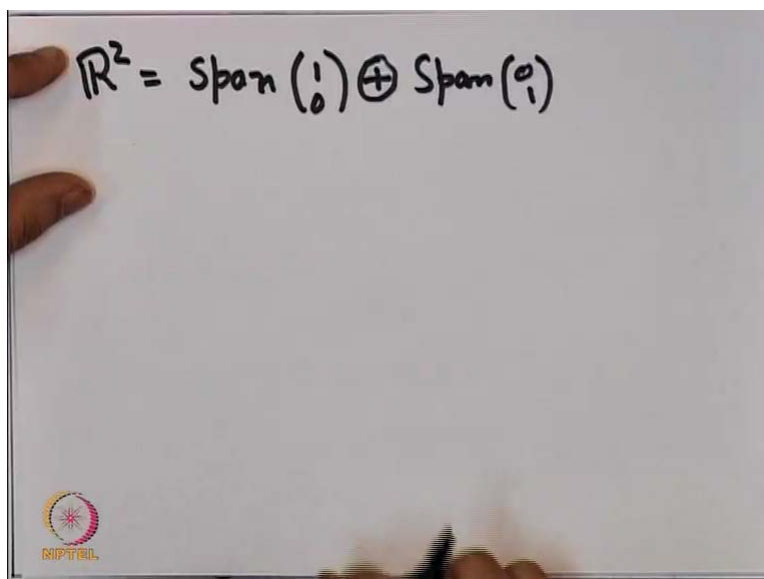 ℝ² = Span (1 0) ⊕ Span (0 1)
NPTEL